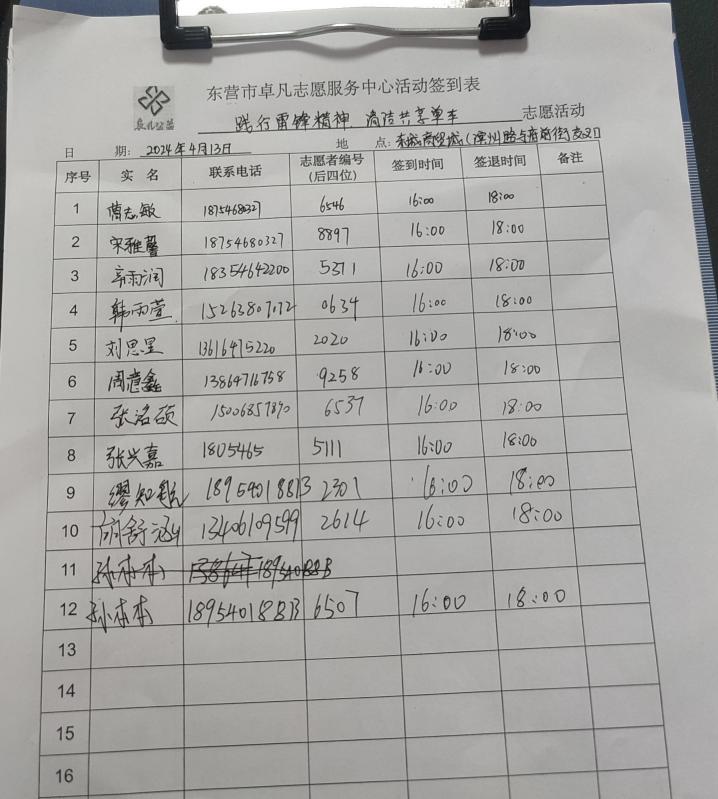 卓凡公益
东营市卓凡志愿服务中心活动签到表
践行雷锋精神 清洁共享单车 志愿活动
日 期: 2024年4月13日 地 点: 东城商贸城(滨州路与府前街交叉口)
序号 实 名 联系电话 志愿者编号(后四位) 签到时间 签退时间 备注
1 曹志敏 18754680327 6546 16:00 18:00
2 宋雅馨 18754680327 8897 16:00 18:00
3 辛雨润 18354642200 5371 16:00 18:00
4 韩雨萱 15263807172 0634 16:00 18:00
5 刘思呈 13616475220 2020 16:00 18:00
6 周意鑫 13864716758 9258 16:00 18:00
7 张洺硕 15006857890 6537 16:00 18:00
8 张兴嘉 1805465 5111 16:00 18:00
9 缪知 18954018813 2301 16:00 18:00
10 胡舒涵 13406109599 2614 16:00 18:00
11 孙木木
12 孙木木 18954018813 6507 16:00 18:00
13
14
15
16